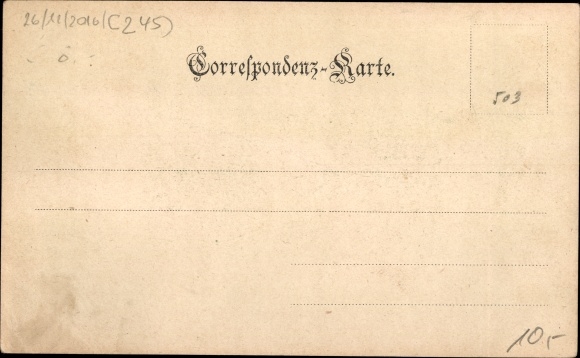 26/11/2016 (C245)
Correspondenz-Karte.
503
10,-